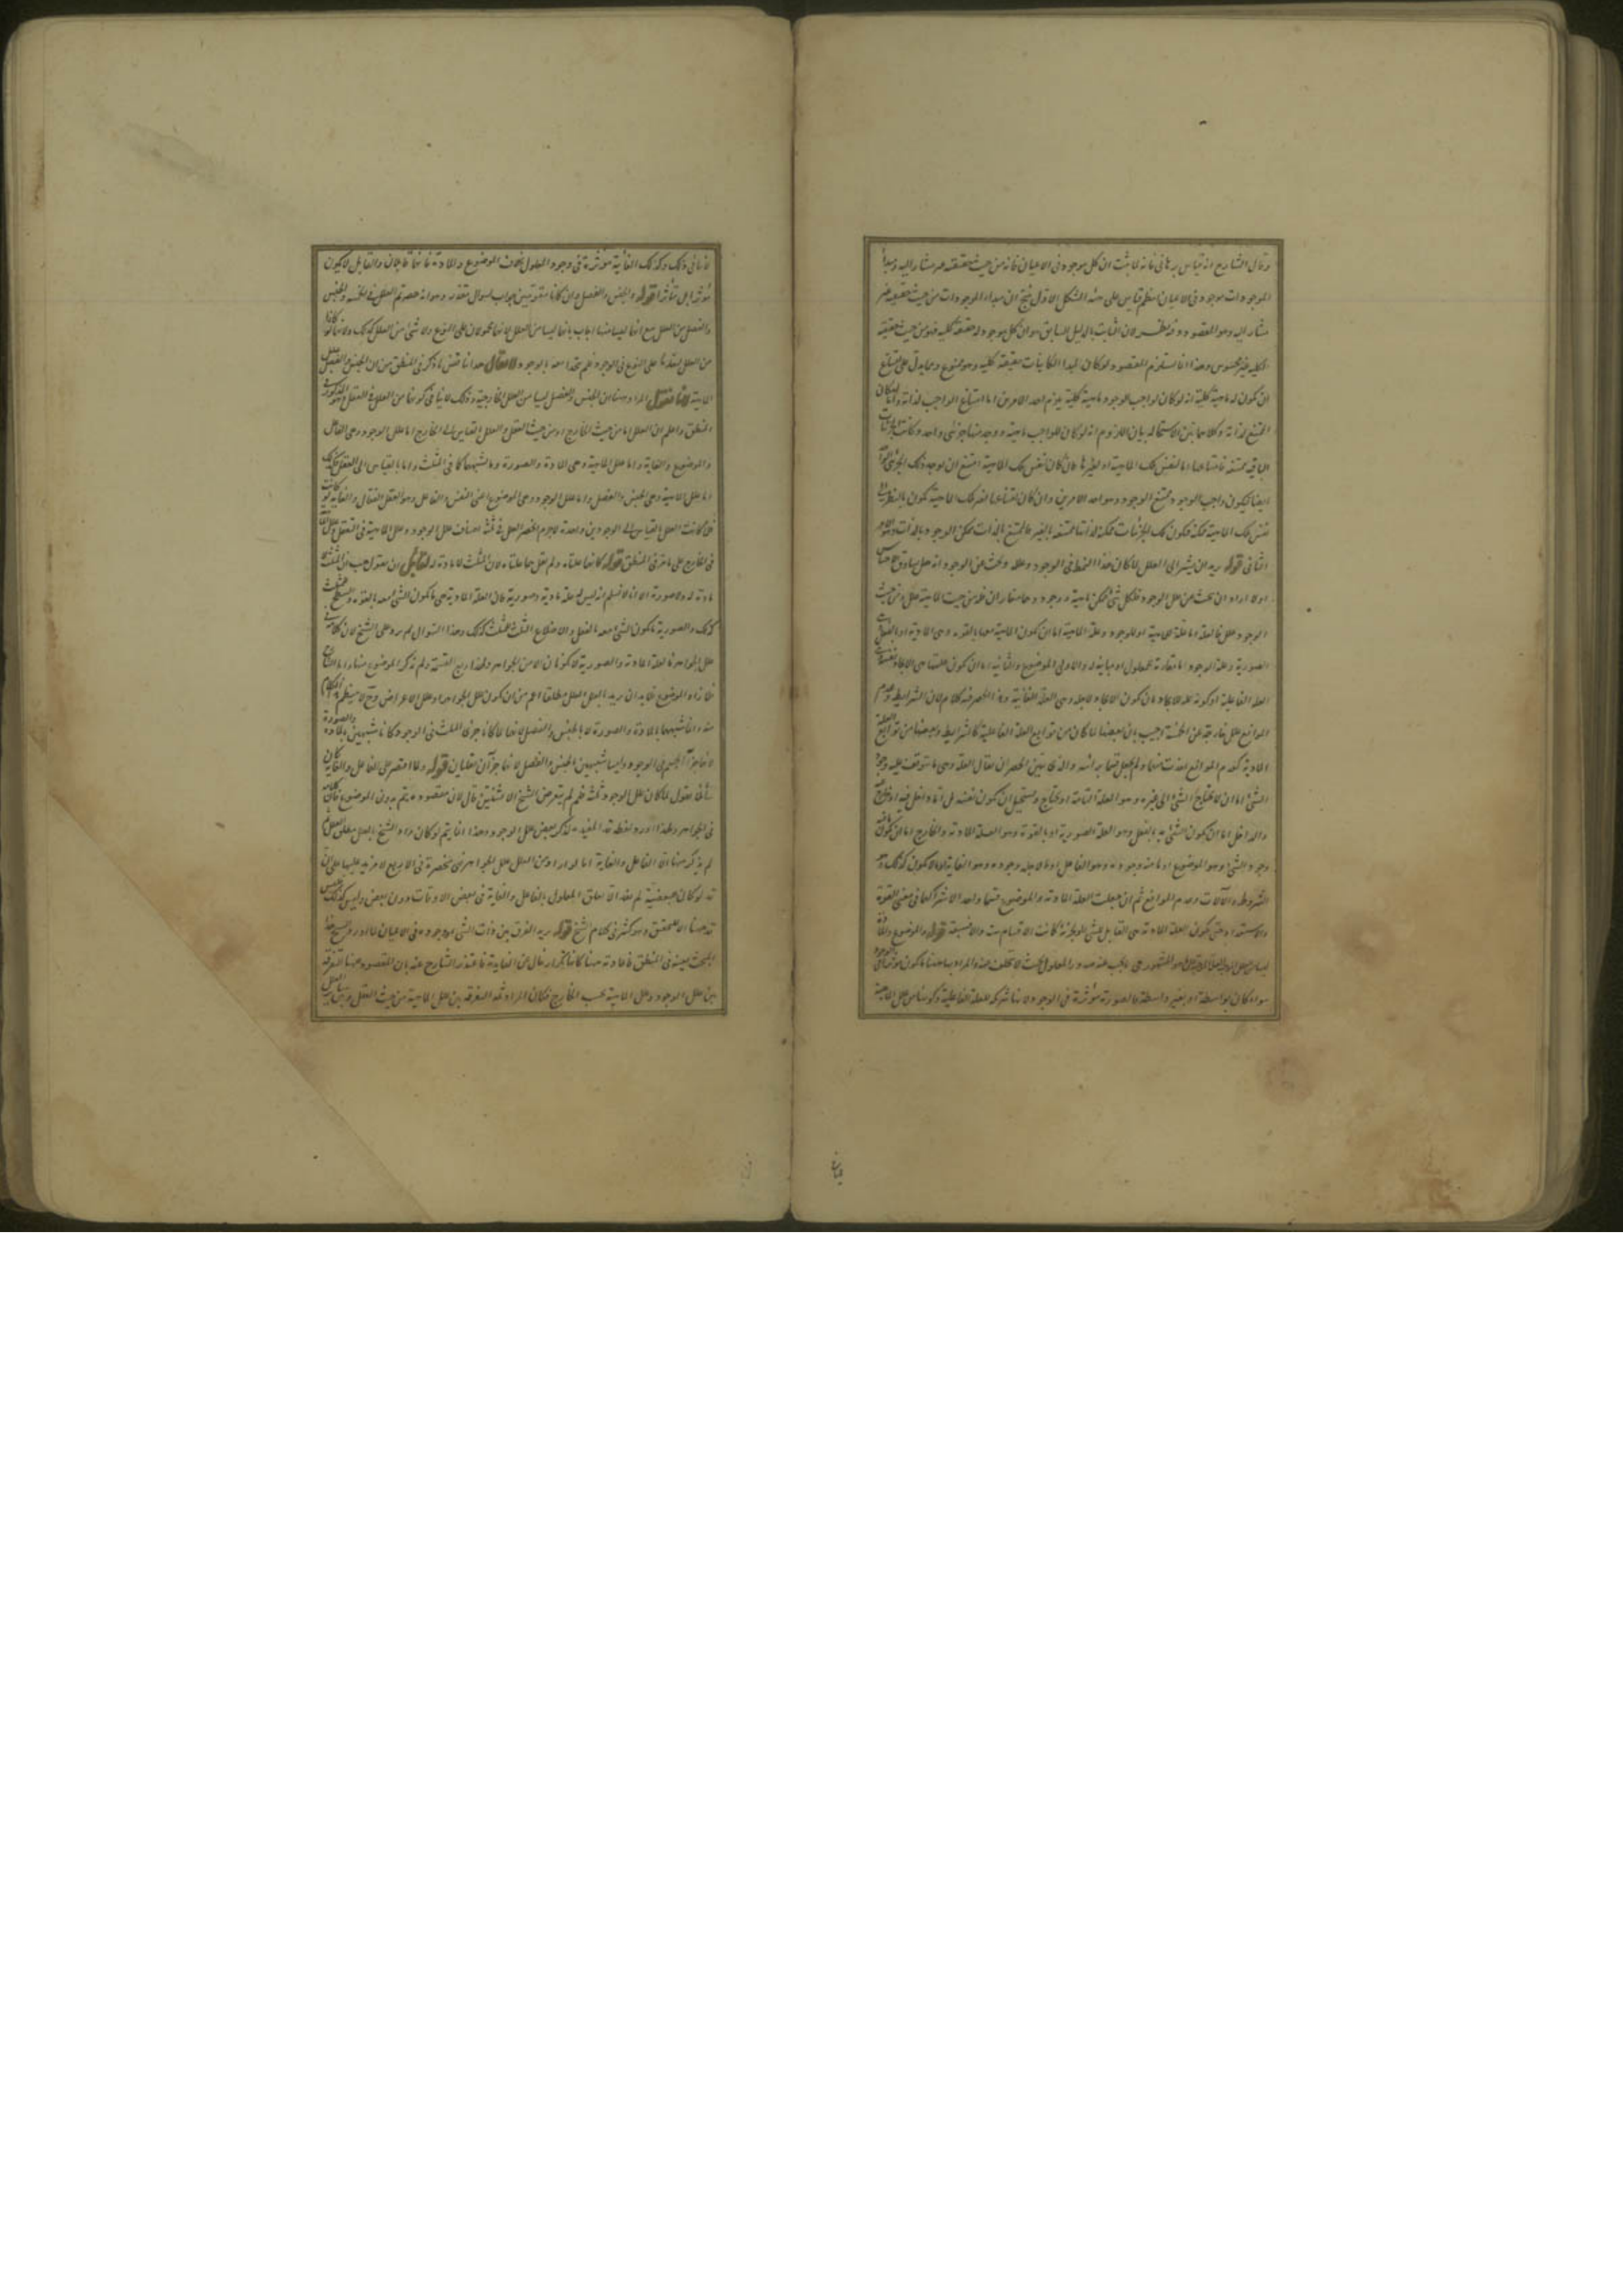 وقال الشارح انه قياس برهانى فانه لما ثبت ان كل موجود فى الاعيان فانه من حيث حقيقته غير مشار اليه ومبدأ
الموجودات موجود فى الاعيان ينتظم قياس على هيئة الشكل الاول ينتج ان مبدأ الموجودات من حيث حقيقته غير
مشار اليه وهو المقصود وفيه نظر لان الثابت بالدليل السابق هو ان كل موجود له حقيقة كلية فهو من حيث حقيقته
الكلية غير محسوس وهذا انما يستلزم المقصود لو كان لمبدأ الكاينات حقيقة كلية وهو ممنوع ومما يدل على امتناع
ان يكون له ماهية كلية انه لو كان لواجب الوجود ماهية كلية يلزم احد الامرين اما امتناع الواجب لذاته واما امكان
الممتنع لذاته وكلاهما بين الاستحالة بيان اللزوم انه لو كان للواجب ماهية ووجد منها جزئى واحد وكانت الجزئيات
الباقية ممتنعة فامتناعها اما لنفس تلك الماهية او لغيرها فان كان لنفس تلك الماهية امتنع ان يوجد ذلك الجزئى الواقع
ايضا فيكون واجب الوجود ممتنع الوجود وهو احد الامرين وان كان امتناعها لغير تلك الماهية تكون بالنظر الى
نفس تلك الماهية ممكنة فتكون تلك الجزئيات ممكنة لذاتها ممتنعة بالغير فالممتنع بالذات ممكن الوجود بالذات وهو الامر
الثانى قوله يريد ان يشير الى العلل لما كان هذا النمط فى الوجود وعلله وبحث عن الوجود
اولا اراد ان يبحث عن علل الوجود فلكل شئ ممكن ماهية ووجود وهما متغايران فله من حيث الماهية علل ومن حيث
الوجود علل فالعلة اما علة للماهية او للوجود وعلة الماهية اما ان يكون الماهية معها بالقوة وهى المادية او بالفعل وهى
الصورية وعلة الوجود اما مقارنة للمعلول او مباينة له والاولى الموضوع والثانية اما ان يكون
العلة الفاعلية او كونه علة للايجاد بان يكون الايجاد لاجله وهى العلة الغائية وفى الحصر فيه كلام لان الشرايط وعدم
الموانع علل خارجة عن الخمسة اجيب بان بعضها لما كان من توابع العلة الفاعلية كالشرايط وبعضها من توابع العلة
المادية كعدم الموانع
الشئ اما ان لا يحتاج الشئ الى غيره وهو العلة التامة او يحتاج ويستحيل ان يكون نفسه بل اما داخل فيه او خارج عنه
والداخل اما ان يكون الشئ به بالفعل وهو العلة الصورية او بالقوة وهو العلة المادية والخارج اما ان يكون ما فيه
وجود الشئ وهو الموضوع او ما منه وجوده وهو الفاعل او ما لاجله وجوده وهو الغاية او ما لا يكون كذلك وهو
الشروط والآلات وعدم الموانع ثم ان جعلت العلة المادية والموضوع قسما واحدا لاشتراكهما فى معنى القوة
والاستعداد حتى يكون العلة المادية هى القابل كانت الاقسام ست والا فسبعة قوله والموضوع والمادة
سواء كان بواسطة او بغير واسطة فالصورة مؤثرة فى الوجود لانها شريكة للعلة الفاعلية وكونها من علل الماهية
لا ينافى ذلك وكذلك الغاية مؤثرة فى وجود المعلول بخلاف الموضوع والمادة فانهما قابلان والقابل لا يكون
مؤثرا بل متأثرا قوله والجنس والفصل وان كانا مقومين جواب لسؤال مقدر وهو انه حصرتم العلل فى الخمسة والجنس
والفصل من العلل مع انهما ليسا منها اجاب بانهما ليسا من العلل لانهما محمولان على النوع ولا شئ من العلل كذلك ولانهما لو كانا
من العلل لتقدما على النوع فى الوجود فلم يتحدا معه بالوجود لا يقال هذا يناقض ما ذكر فى المنطق من ان الجنس والفصل علل
الماهية لانا نقول المراد هنا ان الجنس والفصل ليسا من العلل الخارجية وذلك لا ينافى كونهما من العلل فى العقل وهو المذكور فى
المنطق واعلم ان العلل اما من حيث الخارج او من حيث العقل والعلل بالقياس الى الخارج اما علل الوجود وهى الفاعل
والموضوع والغاية واما علل الماهية وهى المادة والصورة وما يشبههما كما فى المثلث واما بالقياس الى العقل فكذلك
اما علل الماهية وهى الجنس والفصل واما علل الوجود وهى الموضوع اعنى النفس والفاعل وهو العقل الفعال والغاية
فلما كانت العلل بالقياس الى الوجودين واحدة لا جرم انحصر العلل فى ثلثة اصناف علل الوجود وعلل الماهية فى العقل وعلل الماهية
فى الخارج على ما مر فى المنطق قوله كانهما علتاه ولم يقل هما علتاه لان المثلث لا مادة له
مادة له ولا صورة الا انا لا نسلم انه ليس له علة مادية وصورية فان العلة المادية هى ما يكون الشئ معه بالقوة والسطح للمثلث
كذلك والصورية ما يكون الشئ معه بالفعل والاضلاع الثلث للمثلث كذلك وهذا السؤال لم يرد على الشيخ لان كلامه فى
علل الجواهر فالعلة المادية والصورية لا يكونان الا من الجواهر ولهذا ربع القسمة ولم يذكر الموضوع هنا واما الشارح
فلما زاد الموضوع فلا بد ان يريد بالعلل العلل مطلقا اعم من ان يكون علل الجواهر او علل الاعراض وح لا ينتظم الكلام
منه وانما شبههما بالمادة والصورة لا بالجنس والفصل لانهما لما كانا جزئى المثلث فى الوجود كانا شبيهين بالمادة والصورة
لانهما جزآ الجسم فى الوجود وليسا شبيهين بالجنس والفصل لانهما جزآن عقليان قوله وانما اقتصر على الفاعل والغاية
نقول لما كان علل الوجود ثلثة فلم لم يتعرض الشيخ الا لشيئين قال لان مقصوده يتم بدون الموضوع فان كلامه
فى الجواهر ولهذا اورد لفظة قد المفيدة لذكر بعض علل الوجود وهذا انما يتم لو كان مراد الشيخ بالعلل مطلق العلل
لم يذكر هنا الا الفاعل والغاية اما لو اراد من العلل علل الجواهر فهى منحصرة فى الاربع لا مزيد عليها على ان
قد لو كان تبعيضية لم يفد الا تعلق المعلول بالفاعل والغاية فى بعض الاوقات دون بعض وليس كذلك بل
قد هنا للتحقيق وهو كثير فى كلام الشيخ قوله يريد الفرق بين ذات الشئ ووجوده فى الاعيان لما اورد الشيخ هذا
البحث بعينه فى المنطق فاعادته هنا كانها تكرار خال عن الفايدة فاعتذر الشارح عنه بان المقصود هنا التفرقة
بين علل الوجود وعلل الماهية بحسب الخارج فكان المراد ثمة التفرقة بين علل الماهية من حيث العقل وبين ساير العلل